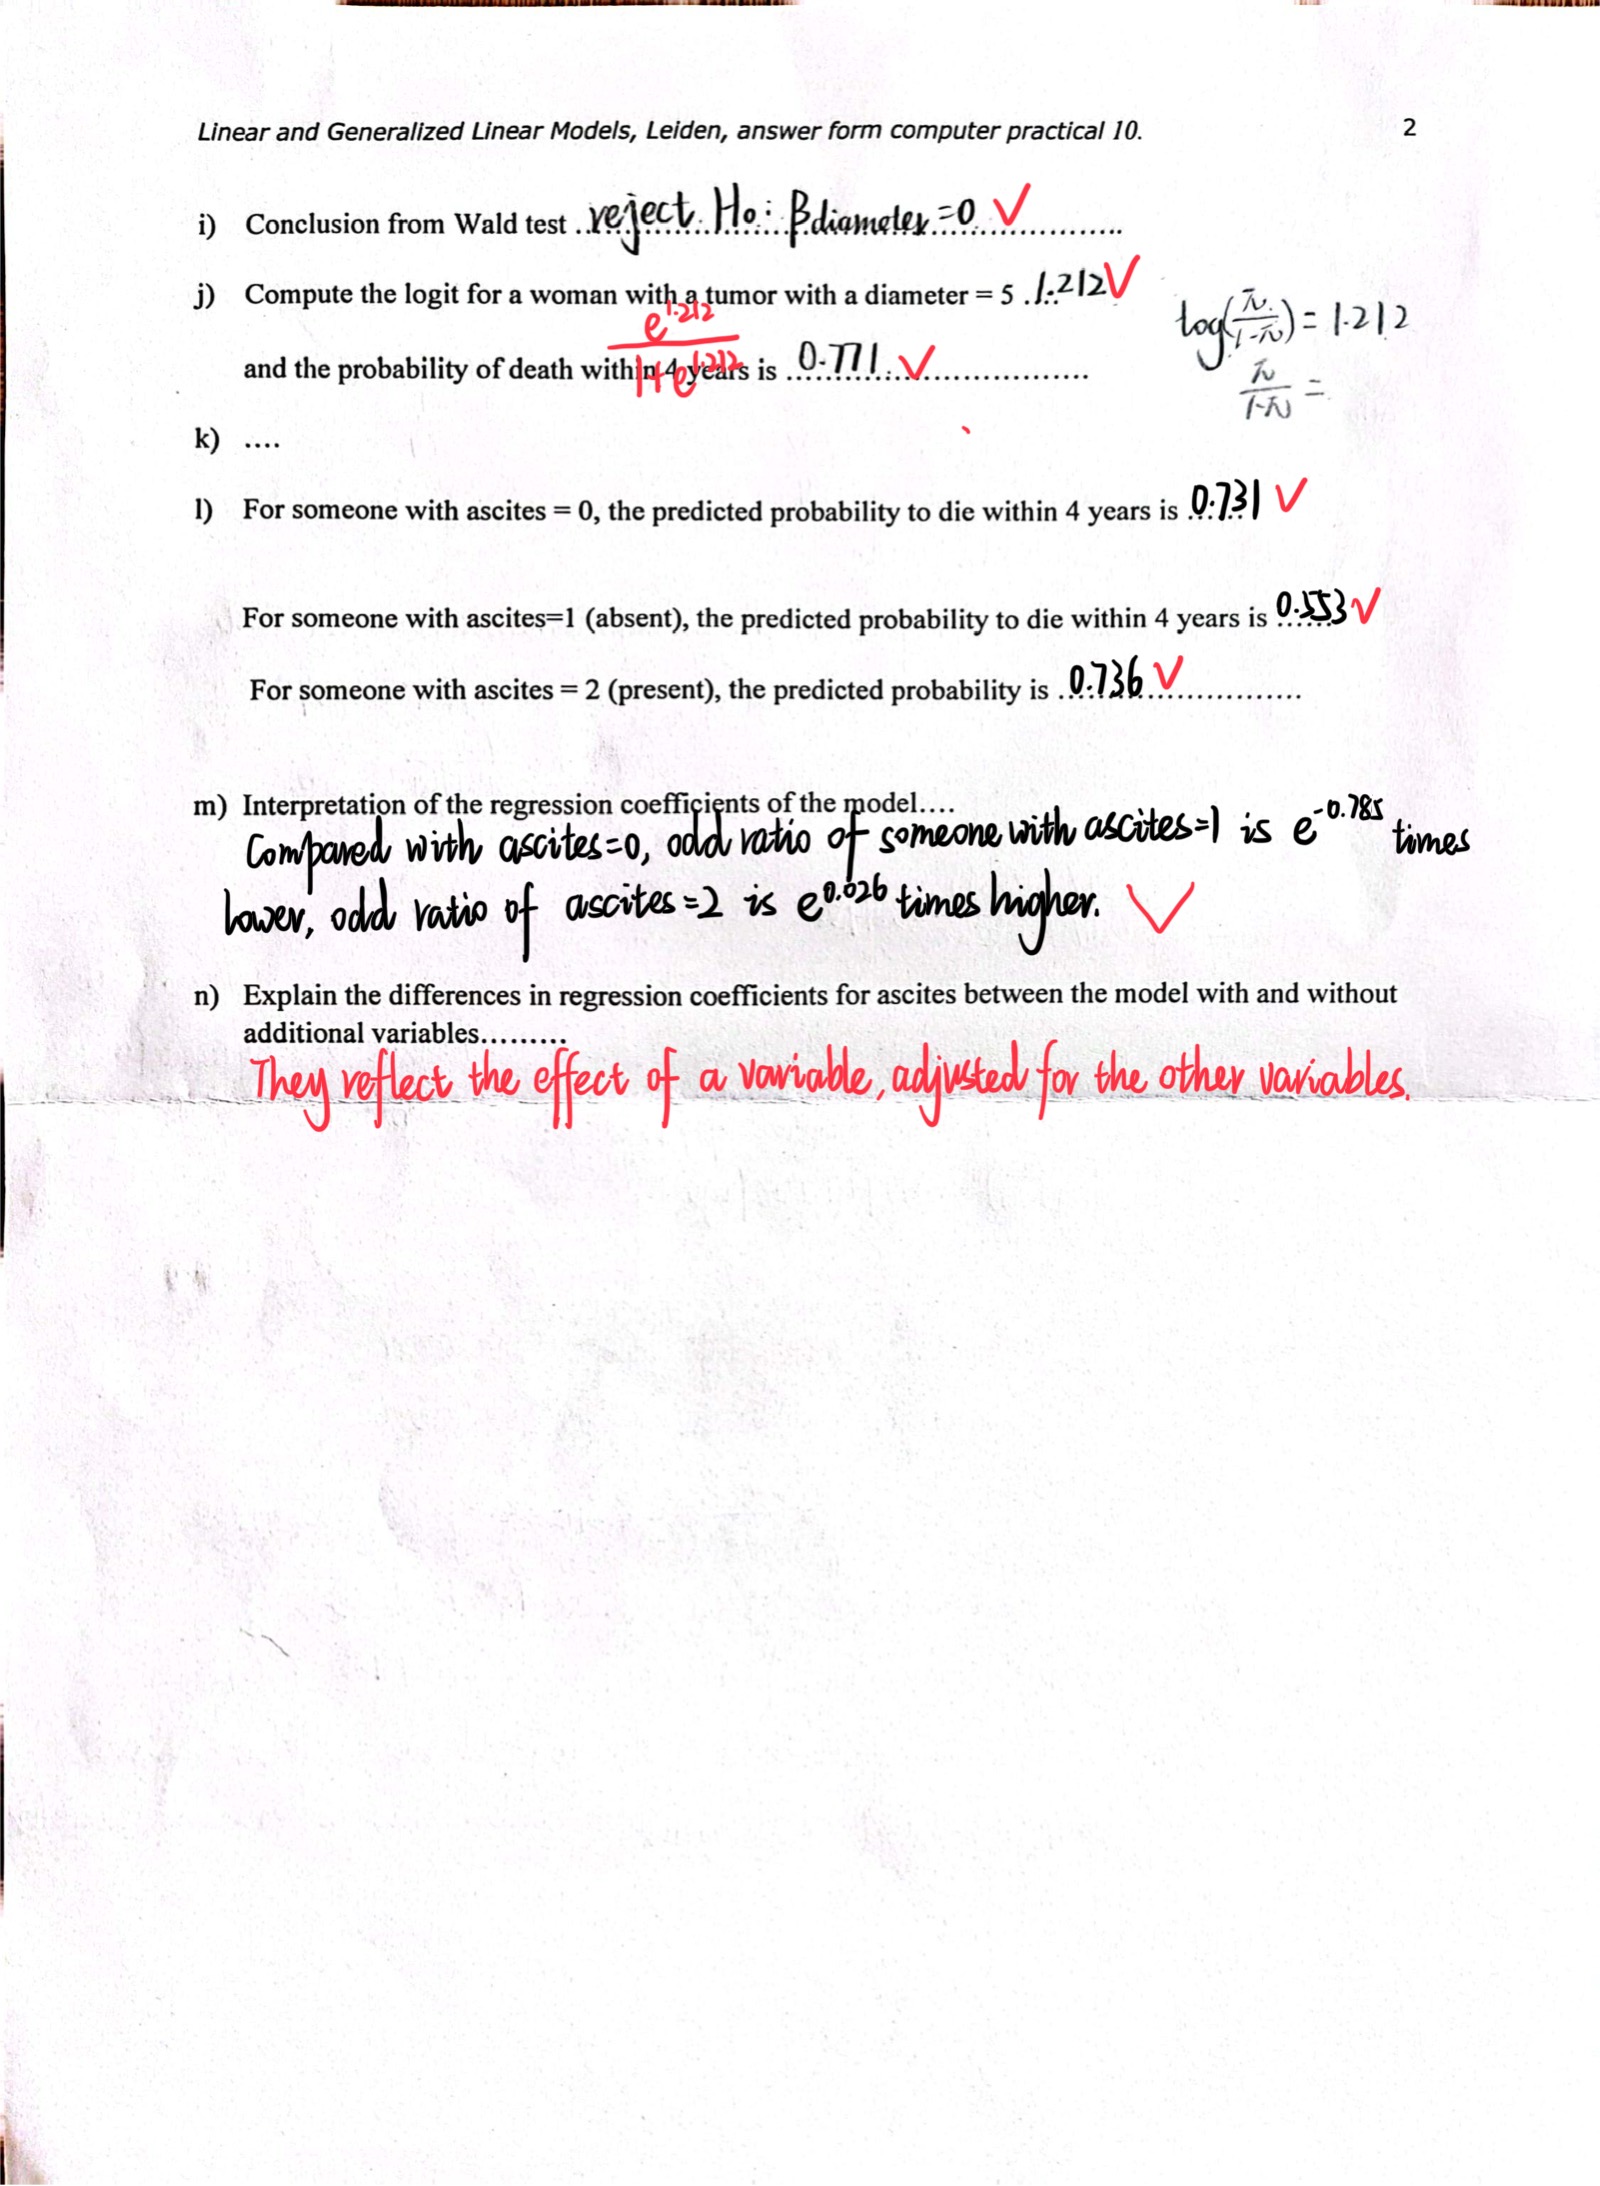 Linear and Generalized Linear Models, Leiden, answer form computer practical 10. 2
i) Conclusion from Wald test ..reject H0: βdiameter=0 ✓
j) Compute the logit for a woman with a tumor with a diameter = 5 .1.212 ✓
log(π/1-π) = 1.212
e^1.212/1+e^1.212
and the probability of death within 4 years is ..0.771 ✓
π/1-π =
k) ....
l) For someone with ascites = 0, the predicted probability to die within 4 years is 0.731 ✓
For someone with ascites=1 (absent), the predicted probability to die within 4 years is 0.553 ✓
For someone with ascites = 2 (present), the predicted probability is ..0.736 ✓
m) Interpretation of the regression coefficients of the model....
Compared with ascites=0, odd ratio of someone with ascites=1 is e^-0.785 times
lower, odd ratio of ascites=2 is e^0.026 times higher. ✓
n) Explain the differences in regression coefficients for ascites between the model with and without
additional variables.........
They reflect the effect of a variable, adjusted for the other variables.